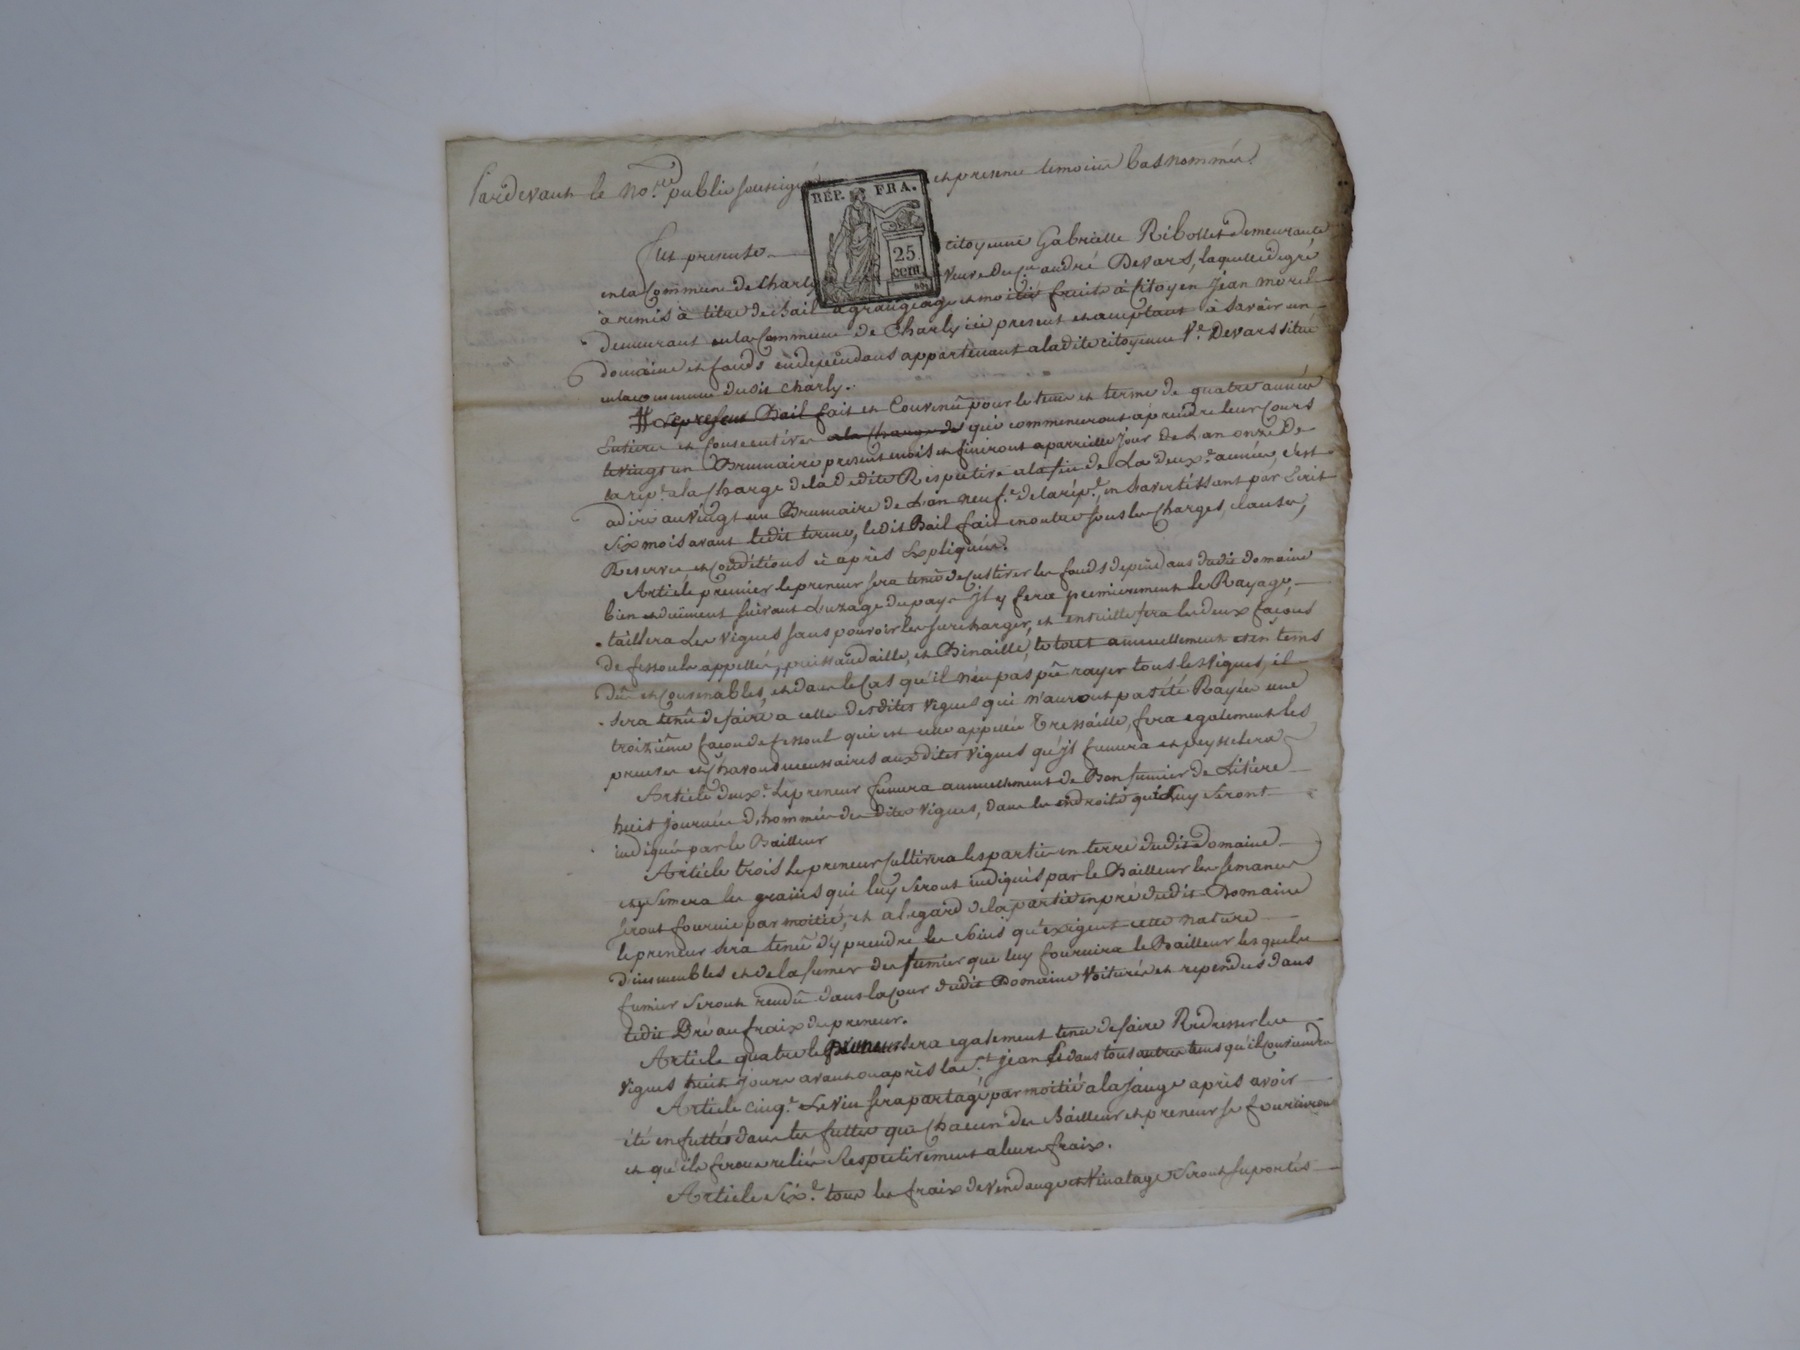 Pardevant le No.re public soussigné et presence temoins bas nommés.
REP. FRA.
25
cent.
fut presente citoyenne Gabrielle Ribollet demeurante
en la Commune de Charly veuve du Cn andré Devars, laquelle de gré
à remis à titre de Bail a grangeage et moitié fruits à Citoyen Jean morel
demeurant en la Commune de Charly ici present et acceptant à Savoir un
domaine et fonds en dependans appartenant a ladite citoyenne Ve. Devars situé
en la commune dudit Charly.
# Le present Bail fait et Convenû pour le tems et terme de quatre années
Entieres et Consecutives a la Charge de qui commenceront a prendre leur Cours
le vingt un Brumaire present mois et finiront a parreille jour de L'an onze De
la rép.e a la Charge de la dedite Respective a la fin de La deuxe. année, c'est
adire au vingt un Brumaire de L'an neuf.e de la rép.e, en S'avertissant par Ecrit
Six mois avant ledit terme, ledit Bail fait en outre sous les Charges, clauses,
Reserves et Conditions ci après Expliquées.
Article premier le preneur sera tenû de Cultiver les fonds dependans dudit domaine
bien et duëment suivant L'uzage du pays il y fera premierement le Rayage,
taillera Les vignes sans pouvoir les surcharger, et ensuitte fera les deux façons
de fessoul appellées, et Binaille, le tout annuellement et en tems
dû et Convenables, et dans le Cas qu'il n'eu pas pû rayer tous les vignes, il
sera tenû de faire a celle desdites vignes qui n'auront pas été Rayées une
troizième façon de fessoul qui est celle appellée Tressaille, fera egalement les
et Chavons necessaires aux dites vignes qu'il fumera et peysselera
Article deuxe. Le preneur fumera annuellement de Bon fumier de Litière
huit journées d'hommées des dites vignes, dans les endroits qui Luy Seront
indiqués par le Bailleur
Article trois Le preneur Cultivera les parties en terre dudit Domaine
et y Semera les grains qui luy Seront indiqués par le Bailleur les semances
seront fournie par moitié, et a l'egard de la partie en pré dudit Domaine
le preneur sera tenû d'y prendre les Soins qu'exigent cette nature
d'immeubles et de la fumer des fumier que luy fournira le Bailleur lesquels
fumier Seront rendû dans la Cour dudit Domaine Voiturés et rependus dans
ledit Pré au fraix du preneur.
Article quatre le preneur sera egalement tenu de faire Redresser les
vignes huit jours avant ou après la St. jean et dans tous autres tems qu'il Conviendra
Article cinqe. Le vin sera partagé par moitié a la jauge après avoir
été enfuttés dans les futtes que Chacun des Bailleur et preneur se fourniront
et qu'ils feront reliés Respectivement a leurs fraix.
Article Sixe. tous les fraix de vendange et Vinatage Seront suportés